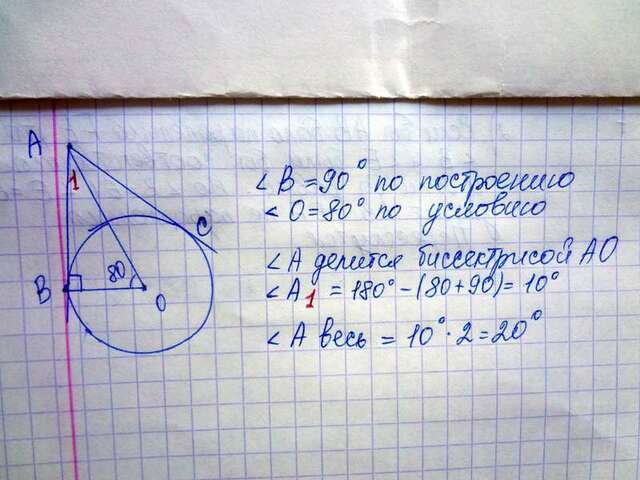 A
1
C
B
80
O
∠ B = 90° по построению
∠ O = 80° по условию
∠ A делится биссектрисой AO
∠ A1 = 180° - (80 + 90) = 10°
∠ A весь = 10° · 2 = 20°